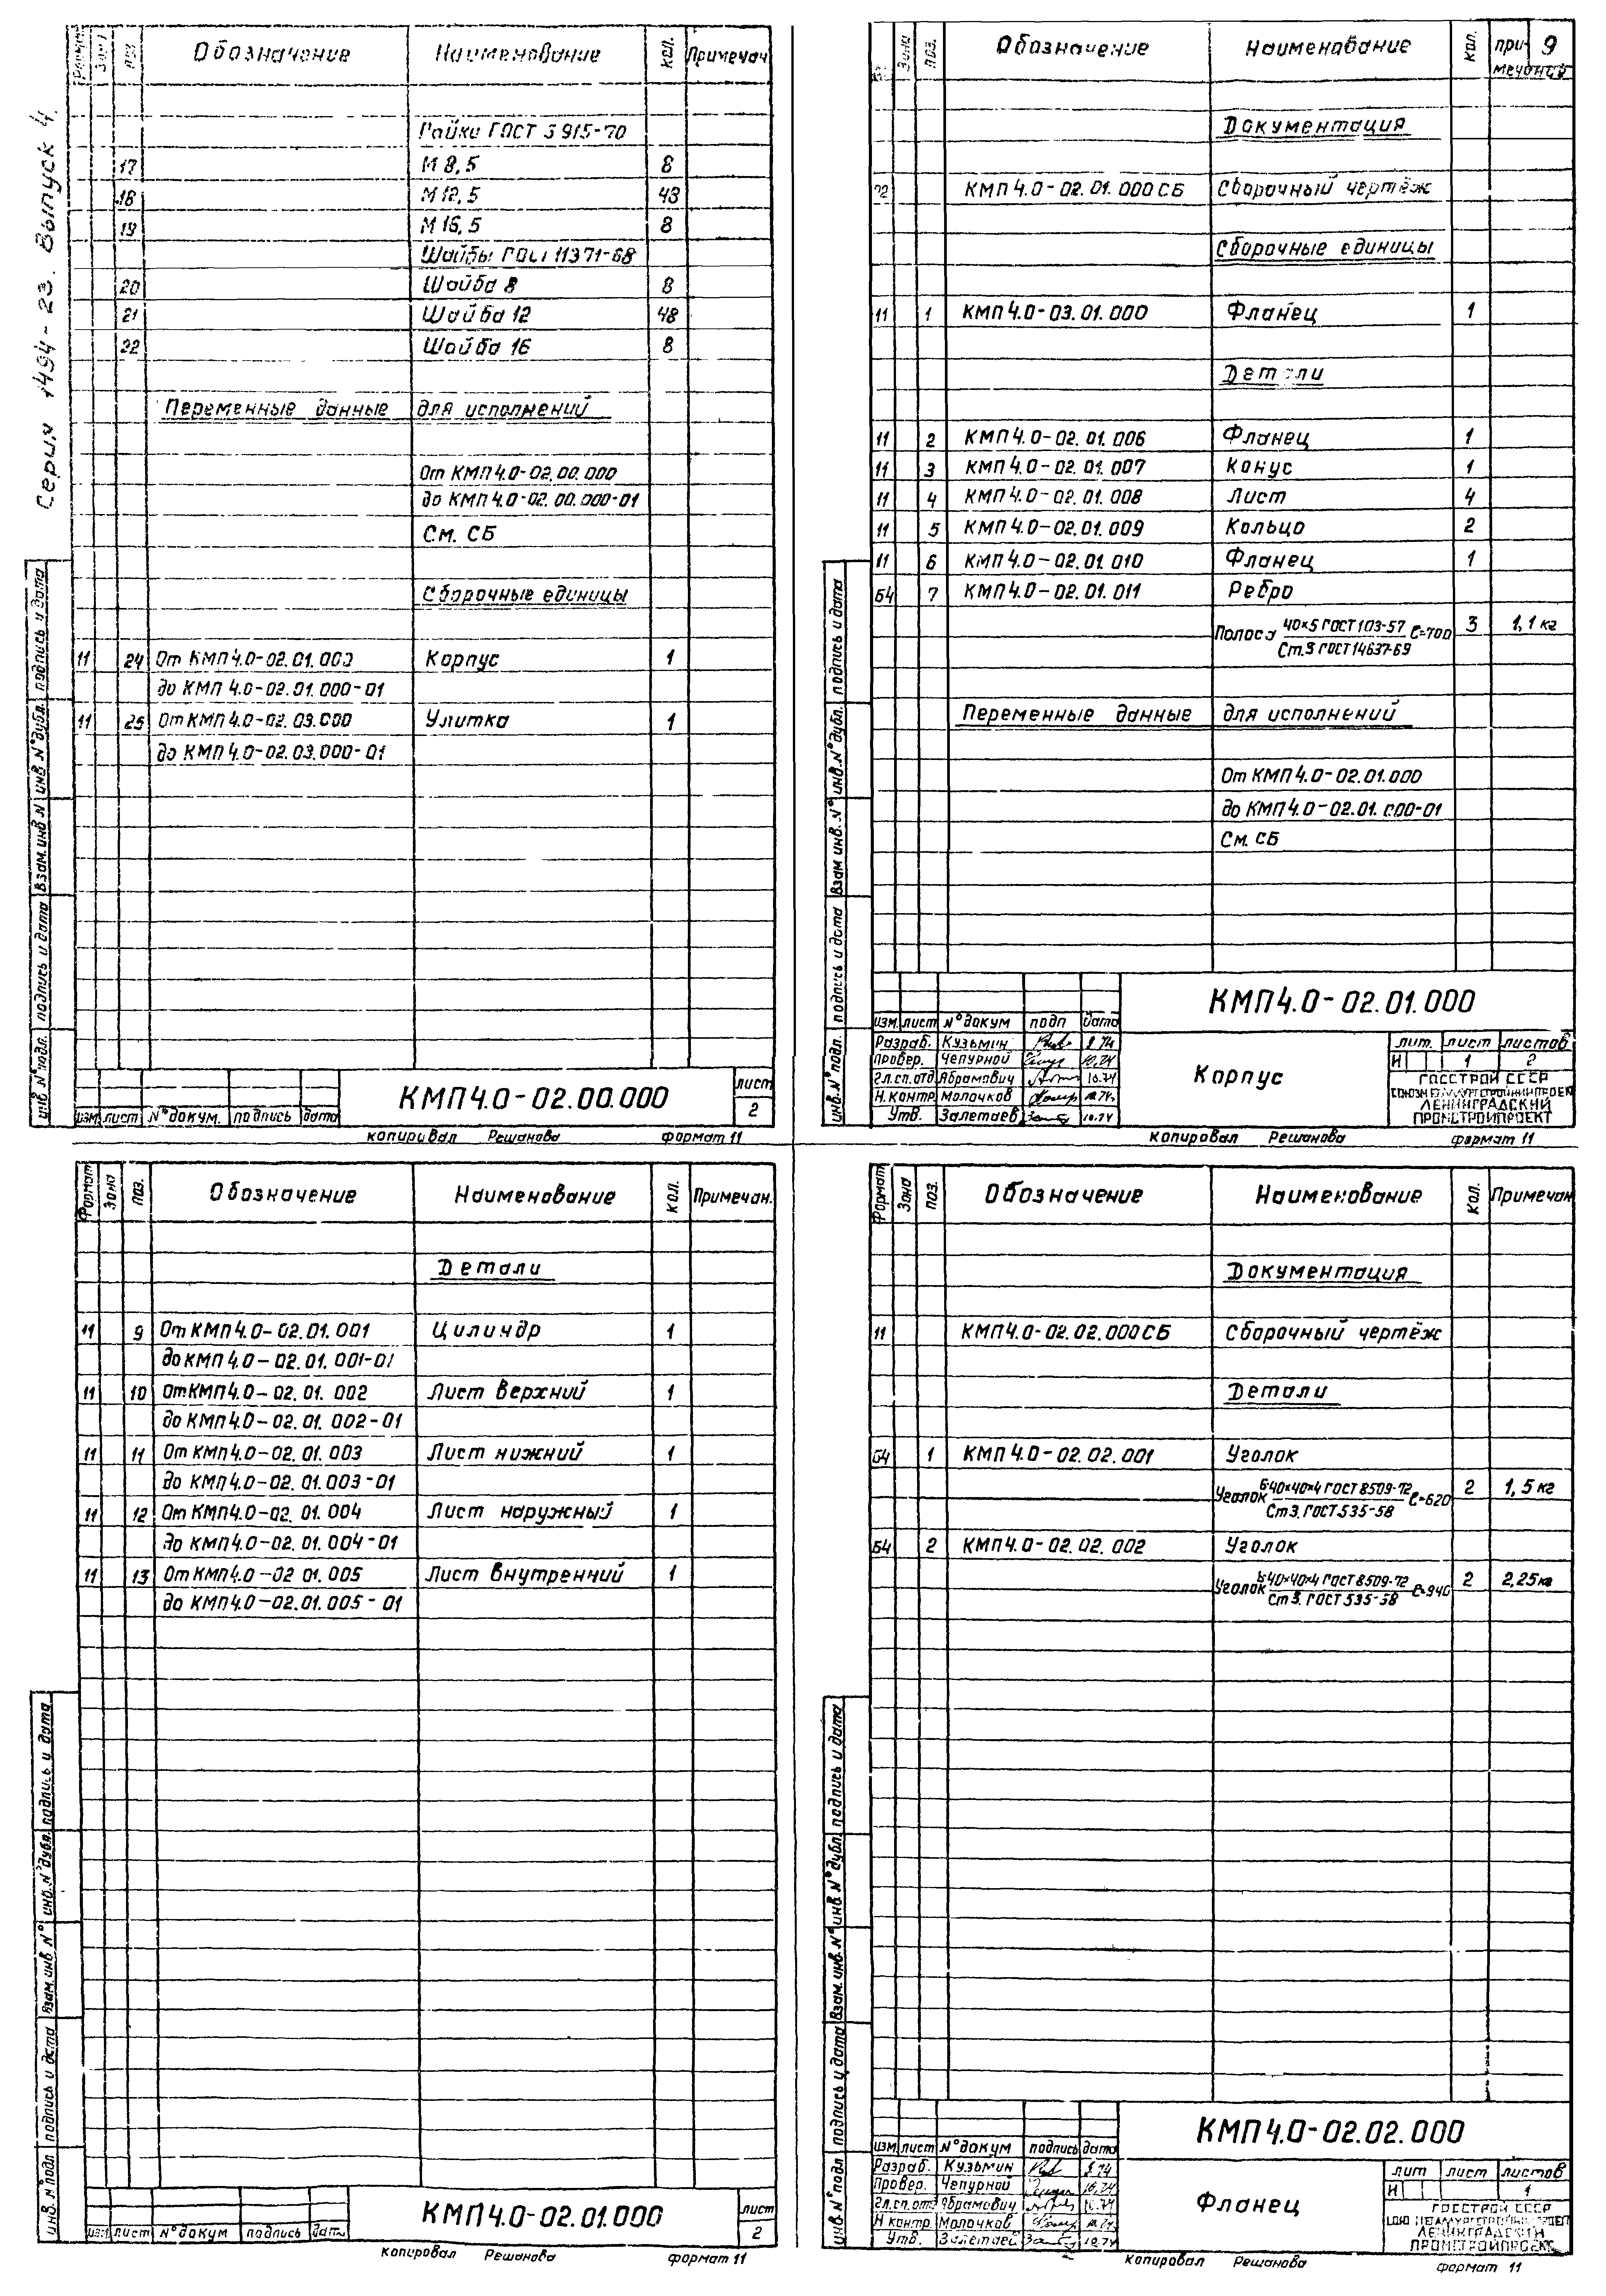 Серия 1494-23. Выпуск 4.
Формат Зона поз. Обозначение Наименование кол. Примечан.
Гайки ГОСТ 5915-70
17 М 8,5 8
18 М 12,5 43
19 М 16,5 8
Шайбы ГОСТ 11371-68
20 Шайба 8 8
21 Шайба 12 48
22 Шайба 16 8
Переменные данные для исполнений
От КМП 4.0-02.00.000
до КМП 4.0-02.00.000-01
См. СБ
Сборочные единицы
11 24 От КМП 4.0-02.01.000 Корпус 1
до КМП 4.0-02.01.000-01
11 25 От КМП 4.0-02.03.000 Улитка 1
до КМП 4.0-02.03.000-01
инв. N° подл. подпись и дата Взам. инв N инв N° дубл. подпись и дата
изм. лист N° докум. подпись дата
КМП 4.0-02.00.000
лист
2
копировал Решанова формат 11
Зона поз. Обозначение Наименование кол. при-мечание 9
Документация
22 КМП 4.0-02.01.000 СБ Сборочный чертёж
Сборочные единицы
11 1 КМП 4.0-03.01.000 Фланец 1
Детали
11 2 КМП 4.0-02.01.006 Фланец 1
11 3 КМП 4.0-02.01.007 Конус 1
11 4 КМП 4.0-02.01.008 Лист 4
11 5 КМП 4.0-02.01.009 Кольцо 2
11 6 КМП 4.0-02.01.010 Фланец 1
Б4 7 КМП 4.0-02.01.011 Ребро
Полоса 40×5 ГОСТ 103-57 ℓ=700 3 1,1 кг
Ст.3 ГОСТ 14637-69
Переменные данные для исполнений
От КМП 4.0-02.01.000
до КМП 4.0-02.01.000-01
См. СБ
инв. N° подл. подпись и дата Взам инв. N° инв. N° дубл. подпись и дата
изм. лист N° докум подп дата
Разраб. Кузьмин 9.74
провер. Чепурной 10.74
Гл.сп.отд Абрамович 10.74
Н.контр Молочков 10.74
Утв. Залетаев 10.74
КМП 4.0-02.01.000
Корпус
лит. лист листов
И 1 2
ГОССТРОЙ СССР
СОЮЗМЕТАЛЛУРГСТРОЙНИИПРОЕКТ
ЛЕНИНГРАДСКИЙ
ПРОМСТРОЙПРОЕКТ
копировал Решанова формат 11
Формат Зона поз. Обозначение Наименование кол. Примечан.
Детали
11 9 От КМП 4.0-02.01.001 Цилиндр 1
до КМП 4.0-02.01.001-01
11 10 От КМП 4.0-02.01.002 Лист верхний 1
до КМП 4.0-02.01.002-01
11 11 От КМП 4.0-02.01.003 Лист нижний 1
до КМП 4.0-02.01.003-01
11 12 От КМП 4.0-02.01.004 Лист наружный 1
до КМП 4.0-02.01.004-01
11 13 От КМП 4.0-02 01.005 Лист внутренний 1
до КМП 4.0-02.01.005-01
инв. N° подл подпись и дата Взам. инв N° инв. N° дубл. подпись и дата
изм лист N° докум подпись дата
КМП 4.0-02.01.000
лист
2
копировал Решанова формат 11
Формат Зона поз. Обозначение Наименование кол. Примечан
Документация
11 КМП 4.0-02.02.000 СБ Сборочный чертёж
Детали
Б4 1 КМП 4.0-02.02.001 Уголок
Уголок Б40×40×4 ГОСТ 8509-72 ℓ=620 2 1,5 кг
Ст 3. ГОСТ 535-58
Б4 2 КМП 4.0-02.02.002 Уголок
Уголок Б40×40×4 ГОСТ 8509-72 ℓ=940 2 2,25 кг
Ст 3. ГОСТ 535-58
инв. N° подл подпись и дата Взам. инв. N° инв N° дубл. подпись и дата
изм. лист N° докум подпись дата
Разраб. Кузьмин 9.74
провер. Чепурной 10.74
Гл.сп.отд Абрамович 10.74
Н контр. Молочков 10.74
Утв. Залетаев 10.74
КМП 4.0-02.02.000
Фланец
лит лист листов
И 1
ГОССТРОЙ СССР
СОЮЗМЕТАЛЛУРГСТРОЙНИИПРОЕКТ
ЛЕНИНГРАДСКИЙ
ПРОМСТРОЙПРОЕКТ
копировал Решанова формат 11